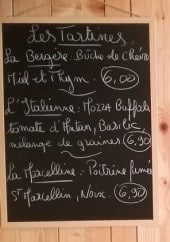 Les Tartines.
La Bergère: Bûche de Chèvre
Miel et Thym. 6,00
L'Italienne: Mozza Buffala
tomate d'Antan, Basilic
mélange de graines 6,90
La Marcelline: Poitrine fumée
St Marcellin, Noix. 6,90